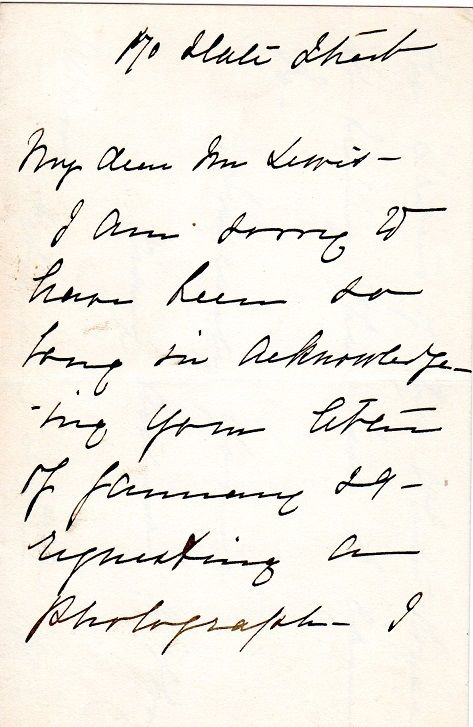 170 State Street
My dear Mr Lewis -
I am sorry to
have been so
long in acknowledge-
-ing your letter
of January 29 -
requesting a
photograph - I